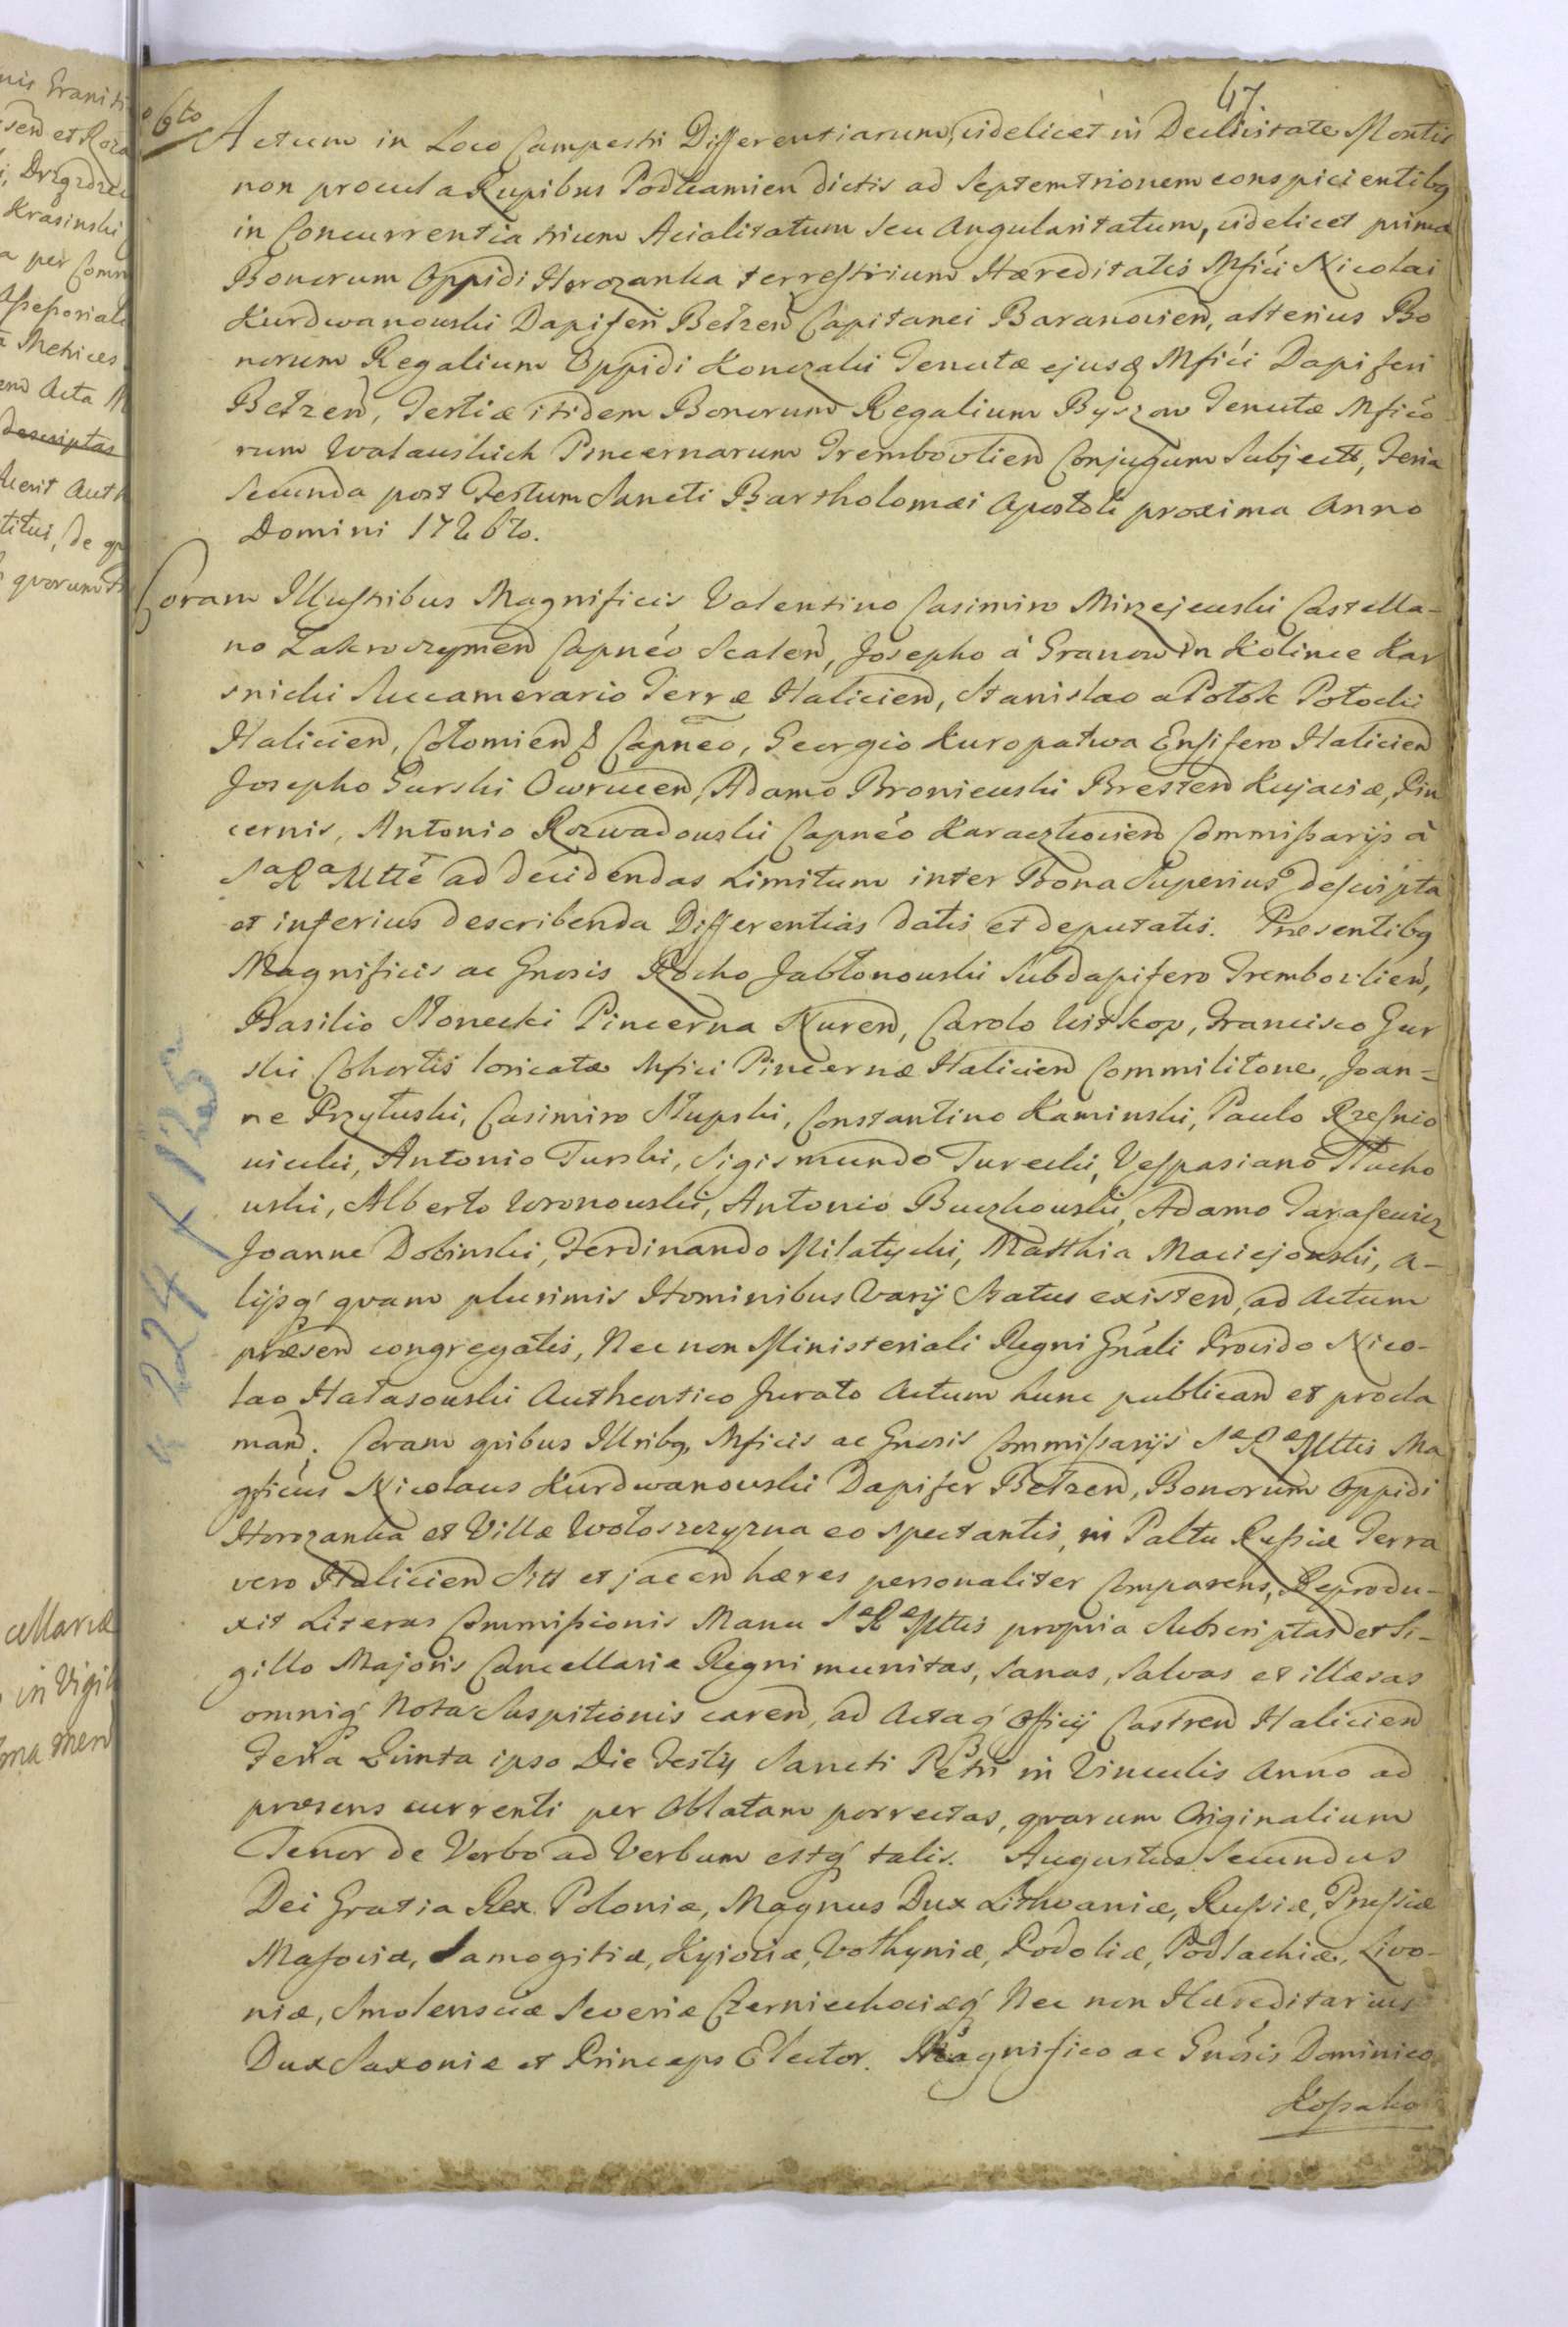 47.
6to
Actum in Loco Campestri Differentiarum, videlicet in Declivitate Montis
non procul a Rupibus Podkamien dictis ad Septemtrionem conspicientibq
in Concurrentia trium Acialitatum seu Angularitatum, videlicet prima
Bonorum Oppidi Horozanka terrestrium Hæreditatis Mfici Nicolai
Kurdwanowski Dapiferi Bełzen Capitanei Baranovien, alterius Bo
norum Regalium Oppidi Konczaki Tenutæ ejusq Mfici Dapiferi
Bełzen, Tertiæ itidem Bonorum Regalium Byszow Tenutæ Mfico
rum Walawskich Pincernarum Trembovlien Conjugum Subject, Feria
Secunda post Festum Sancti Bartholomæi Apostoli proxima Anno
Domini 1726to.
Coram Illustribus Magnificis Valentino Casimiro Mirzejewski Castella-
no Zakroczymen Capneo Scalen, Josepho à Granow in Kolince Kar
snicki Succamerario Terræ Halicien, Stanislao a Potok Potocki
Halicien, Cołomienq Capneo, Georgio Kuropatwa Ensifero Halicien
Josepho Gurski Owrucen, Adamo Broniewski Bresten Kujaviæ, Pin
cernis, Antonio Rozwadowski Capneo Karaczkovien Commissarijs à
Sa Ra Mtte ad decidendas Limitum inter Bona Superius descripta
et inferius describenda Differentias datis et deputatis. Præsentibq
Magnificis ac Gnosis Rocho Jabłonowski Subdapifero Trembovlien,
Basilio Stonecki Pincerna Nuren, Carolo Witkop, Francisco Gur
ski Cohortis loricatæ Mfici Pincernæ Halicien Commilitone, Joan=
ne Przyłuski, Casimiro Słupski, Constantino Kaminski, Paulo Rzesnio
wiecki, Antonio Turski, Sigismundo Turecki, Vespasiano Tłucho
wski, Alberto Woronowski, Antonio Buczkowski, Adamo Tarasewicz
Joanne Dobinski, Ferdinando Miłatycki, Matthia Maciejowski, a-
lijsq quam plurimis Hominibus Varij Status existen, ad Actum
præsen congregatis, Nec non Ministeriali Regni Gnali Provido Nico-
lao Hałasowski Authentico Jurato Actum hunc publican et procla
man. Coram quibus Illribq, Mficis ac Gnosis Commissarijs Sæ Ræ Mttis Ma
gficus Nicolaus Kurdwanowski Dapifer Bełzen, Bonorum Oppidi
Horozanka et Villæ Wołoszczyzna eo spectantis, in Pałtu Russiæ Terra
vero Halicien Sitt et jacen hæres personaliter Comparens, Reprodu-
xit Literas Commissionis Manu Sæ Ræ Mttis propria Subscriptas et Si-
gillo Majoris Cancellariæ Regni munitas, Sanas, Salvas et illæsas
omniq Nota Suspitionis caren, ad Actaq Officij Castren Halicien
Feria Quinta ipso Die Festij Sancti Petri in Vinculis Anno ad
præsens currenti per Oblatam porrectas, quarum Originalium
Tenor de Verbo ad Verbum estq talis. Augustus Secundus
Dei Gratia Rex Poloniæ, Magnus Dux Lithvaniæ, Russiæ, Prussiæ
Masoviæ, Samogitiæ, Kyioviæ, Volhyniæ, Podoliæ, Podlachiæ, Livo-
niæ, Smolensciæ Severiæ Czerniechoviæq Nec non Hæreditarius
Dux Saxoniæ et Princeps Elector. Magnifico ac Gnosis Dominico
Kossako